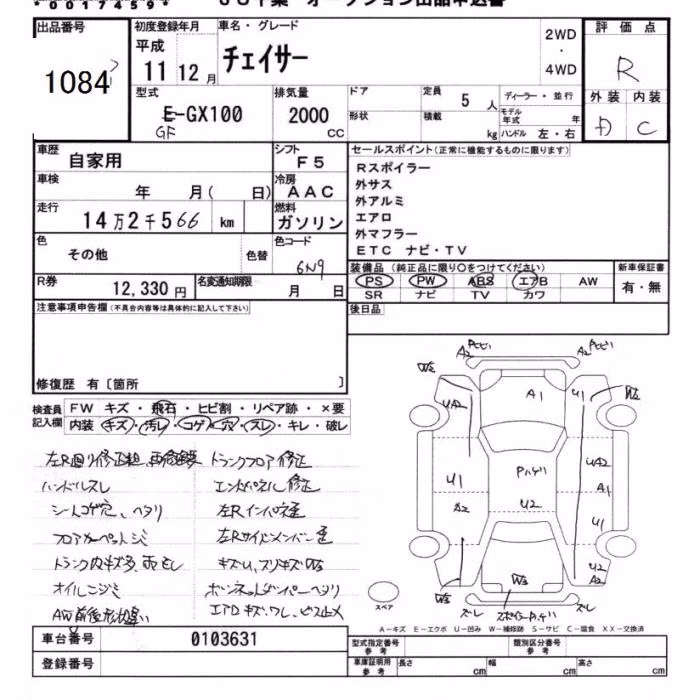 *0017459*
出品番号 初度登録年月 車名・グレード 2WD・4WD 評価点
1084 平成 11 12月 チェイサー R
型式 排気量 ドア 定員 5人 ディーラー・並行 外装 内装
E-GX100 2000CC 形状 積載 kg モデル年式 年 ハンドル 左・右 C
GF
車歴 自家用 シフト F5 セールスポイント(正常に機能するものに限ります)
車検 年 月(日) 冷房 AAC Rスポイラー
外サス
走行 14万2千566 km 燃料 ガソリン 外アルミ
エアロ
色 その他 色替 色コード 6N9 外マフラー
ETC ナビ・TV
R券 12,330円 名変通知期限 月 日 装備品(純正品に限り○をつけてください) 新車保証書
PS PW ABS エアB AW 有・無
SR ナビ TV カワ
注意事項申告欄(不具合内容等は具体的に記入して下さい) 後日品
修復歴 有〔箇所 〕
検査員記入欄 FW キズ・飛石・ヒビ割・リペア跡・×要
内装 キズ・汚レ・コゲ・穴・スレ・キレ・破レ
トランクフロア修正
ハンドルスレ エンドパネル修正
シートコゲ穴、ヘタリ 左Rインパネ歪
フロアカーペットシミ 左Rサイドメンバー歪
トランク内キズ多、雨もし キズU、スリキズW3
オイルニジミ ボンネットダンパーヘタリ
AW前後形状違い エアロキズ、ワレ、ビス止メ
A2 A2
W3 W3
UA2 A1 U1
U1 Pハゲリ UA2
A2 U2 A1
U1
W3 W3 U2
A2
スペア スレ スレ
A-キズ E-エクボ U-凹み W-補修跡 S-サビ C-腐食 XX-交換済
車台番号 0103631 型式指定番号 参考 類別区分番号 参考
登録番号 車庫証明用 参考 長さ cm 幅 cm 高さ cm